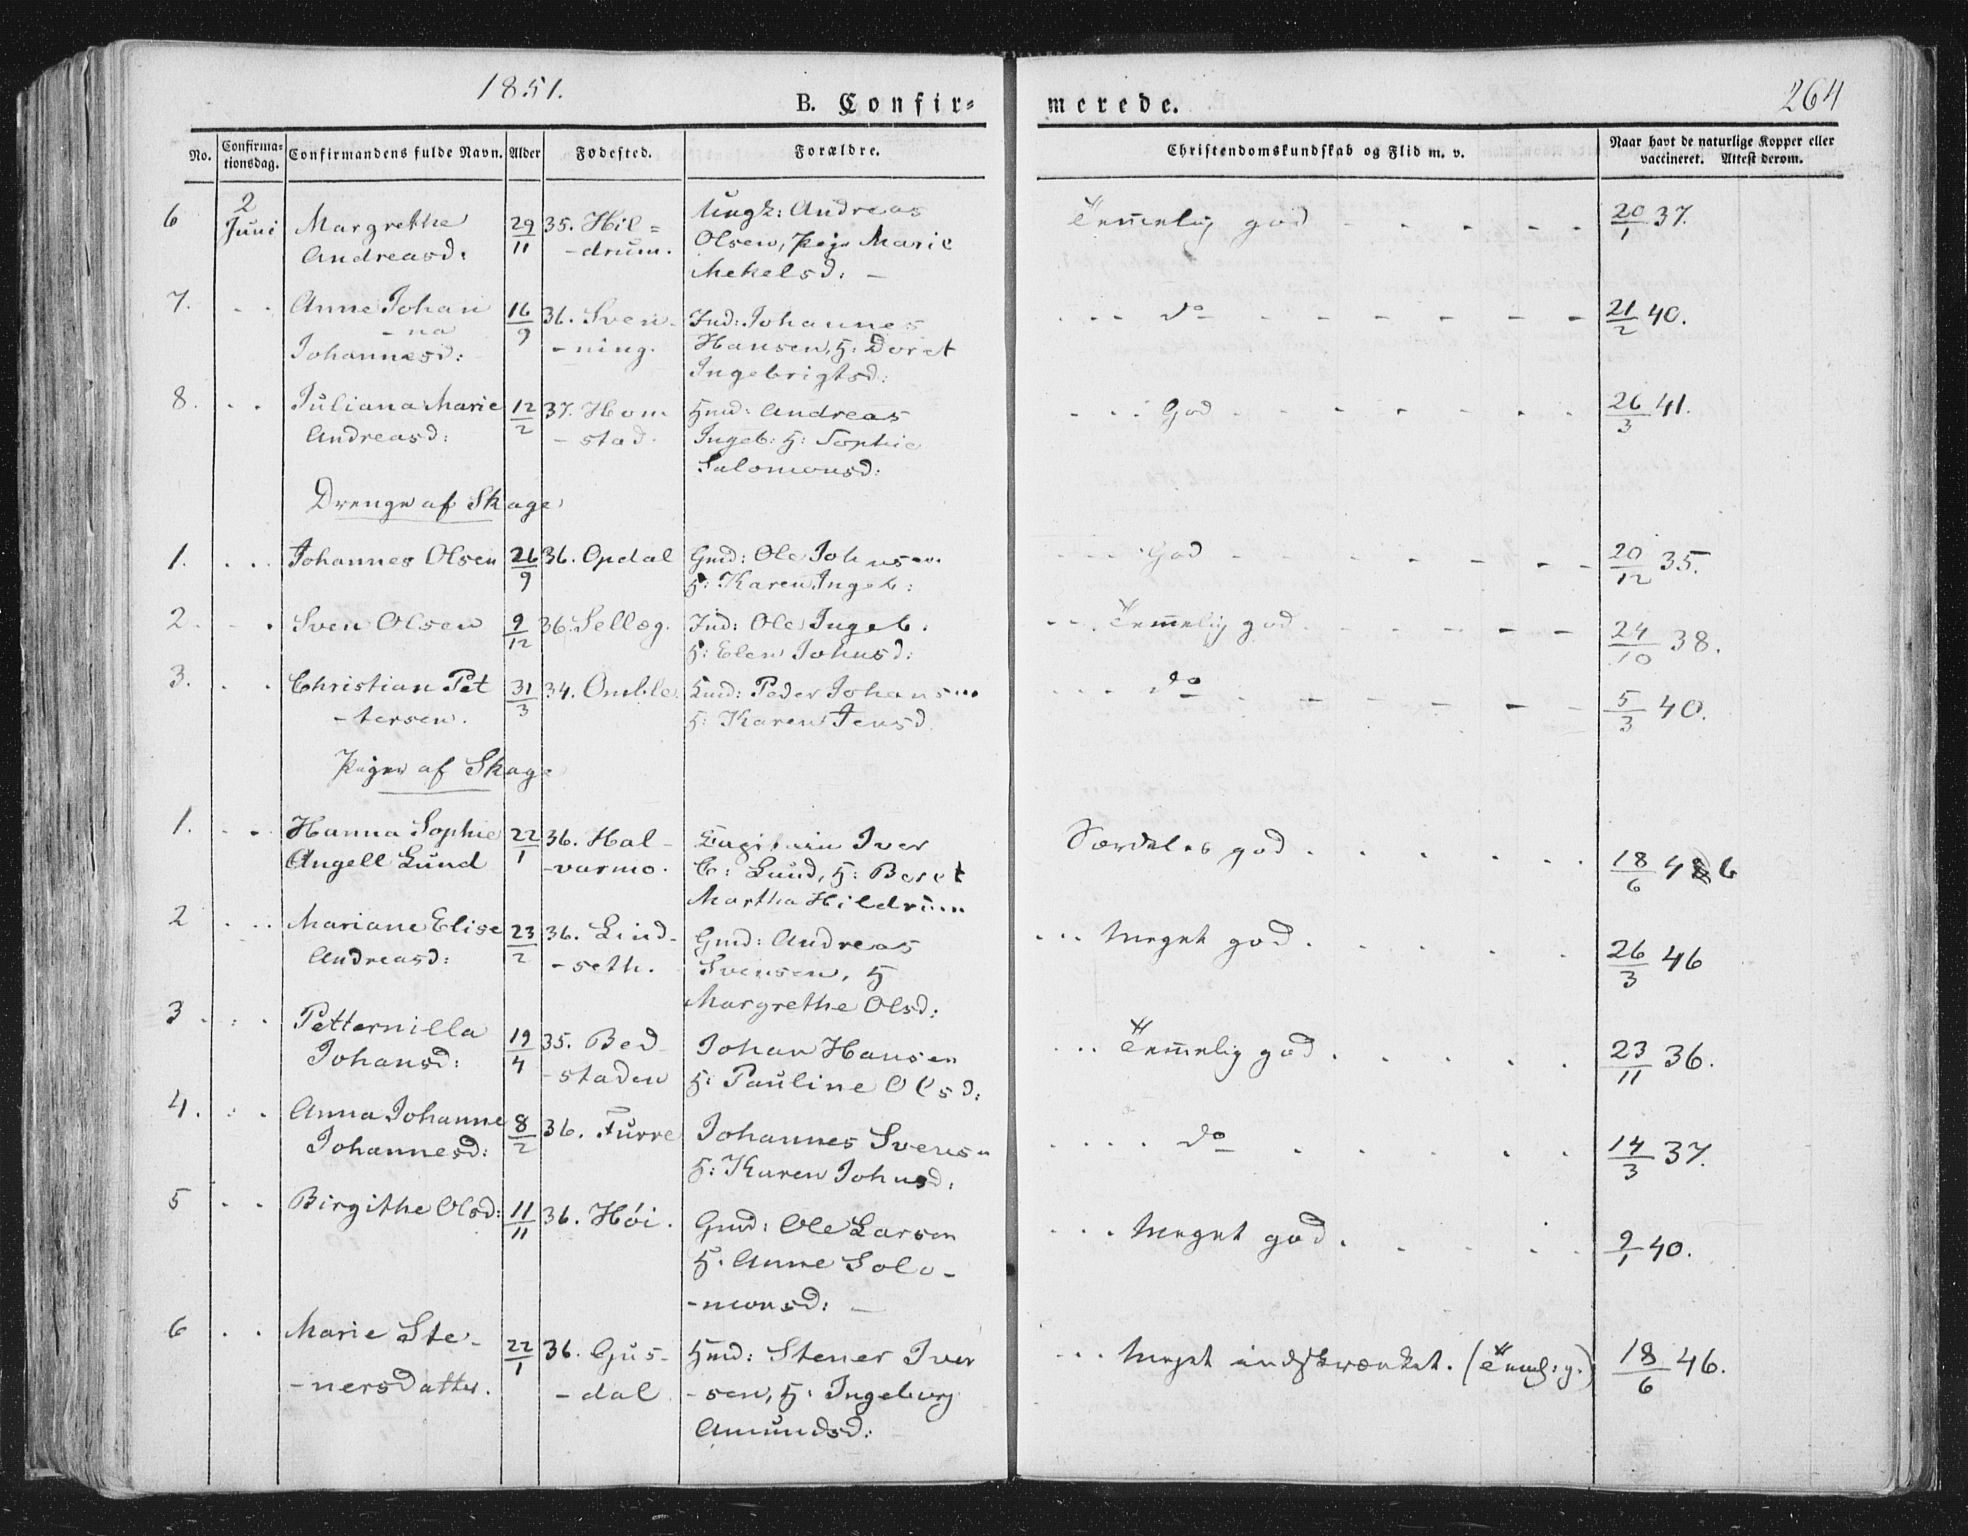 1851.
264
B. Confir=
merede.
No. Confirma-tionsdag. Confirmandens fulde Navn. Alder Fødested. Forældre. Christendomskundskab og Flid m. v. Naar havt de naturlige Kopper eller vaccineret. Attest derom.
6 2 Juni Margrethe 29/11 35. Hil= Ungk: Andreas Temmelig god - - - - - 20/1 37.
Andreasd: -drum. Olsen, Pige Marie
Mekelsd: -
7. - . Anne Johan 16/9 36. Sven- Ind: Johannes . . . do - - - - - - 21/2 40.
-na -ning. Hansen, H: Doret
Johannesd: Ingebrigtsd:
8. . . Juliana Marie 12/2 37. Hom Hmd: Andreas . . . God - - - - - 26/3 41.
Andreasd: -stad. Ingeb: H: Sophie
Salomonsd:
Drenge af Skage
1. . . . Johannes Olsen 26/9 36. Opdal Gmd: Ole Johnsen . . . God - - - - - 20/12 35.
H: Karen Ingeb:
2. - . Sven Olsen 9/12 36. Sellæg. Ind: Ole Ingeb. . . . Temmelig god - - - - 24/10 38.
H: Elen Johnsd:
3. . . Christian Pet 31/3 34. Omble. Hmd: Peder Johansen . . . do - - - - - 5/3 40.
-tersen. H: Karen Jensd
Piger af Skage
1. - - Hanna Sophie 22/1 36. Hal- Capitain Iver Særdeles god . . . . . . 18/6 46
Angell Lund -varmo. C: Lund, H: Beret
Martha Hildrum
2 . . . Mariane Elise 23/2 36. Lind- Gmd: Andreas . . . Meget god . . . . 26/3 46
Andreasd: -seth. Svensen, H
Margrethe Olsd:
3 . : . Petternilla 19/4 35. Bed- Johan Hansen . . . Temmelig god . . . . 23/11 36.
Johansd: -staden H: Pauline Olsd:
4. : . Anna Johanne 8/2 36. Furre Johannes Svensn . . . . do . . . . . 14/3 37.
Johannesd: H: Karen Johnsd:
5 . . Birgithe Olsd: 11/11 36. Høi. Gmd: Ole Larsen . . . Meget god . . . . . 9/1 40.
H. Anne Solo-
-monsd: -
6 . . Marie Ste- 22/1 36. Gus- Hmd: Stener Iver . . . Meget indskrænket. (Teml: g.) 18/6 46.
-nersdatter. -dal. -sen, H: Ingeborg
Amundsd: